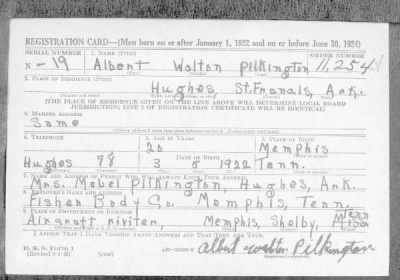 REGISTRATION CARD—(Men born on or after January 1, 1922 and on or before June 30, 1924)
SERIAL NUMBER 1. NAME (Print) ORDER NUMBER
N-19 Albert Walton Pilkington 11,254
(First) (Middle) (Last)
2. PLACE OF RESIDENCE (Print)
Hughes St. Francis, Ark.
(Number and street) (Town, township, village, or city) (County) (State)
[THE PLACE OF RESIDENCE GIVEN ON THE LINE ABOVE WILL DETERMINE LOCAL BOARD
JURISDICTION; LINE 2 OF REGISTRATION CERTIFICATE WILL BE IDENTICAL]
3. MAILING ADDRESS
Same
(Mailing address if other than place indicated on line 2. If same insert word same)
4. TELEPHONE 5. AGE IN YEARS 6. PLACE OF BIRTH
20 Memphis
DATE OF BIRTH
Hughes 78 3 5 1922 Tenn.
7. NAME AND ADDRESS OF PERSON WHO WILL ALWAYS KNOW YOUR ADDRESS
Mrs. Mabel Pilkington, Hughes, Ark.
8. EMPLOYER'S NAME AND ADDRESS
Fisher Body Co. Memphis, Tenn.
9. PLACE OF EMPLOYMENT OR BUSINESS
Aircraft riviter, Memphis, Shelby, Tenn
I AFFIRM THAT I HAVE VERIFIED ABOVE ANSWERS AND THAT THEY ARE TRUE.
D. S. S. Form 1
(over)
Albert Walton Pilkington